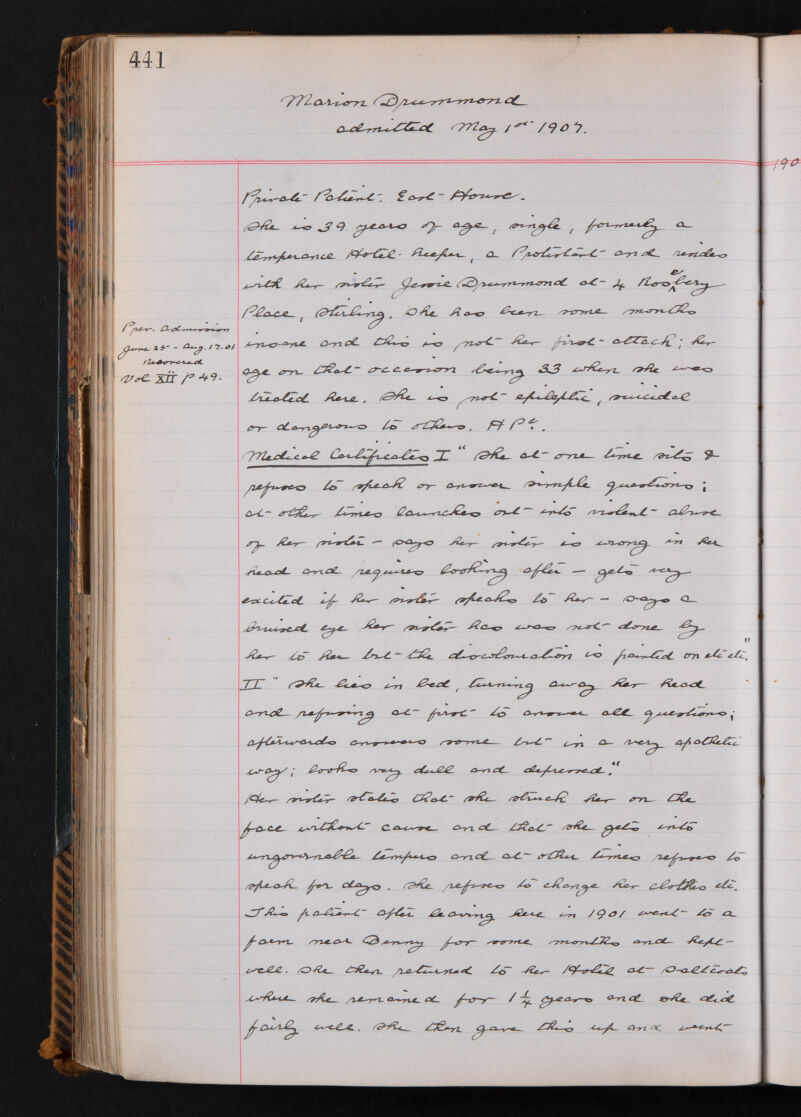 441
Marion Drummond
admitted May 1st 1907.
190
Private Patient. East House.
She is 39 years of age, single, formerly a
temperance Hotel-keeper, a Protestant and resides
with her sister Jessie Drummond at 4 Rosebery
Place, Stirling. She has been some months
Prev. Admission
June 25 - Aug. 17. 01
Recovered
Vol XII p 49.
insane and this is not her first attack; her
age on that occasion being 33 when she was
treated here. She is not epileptic, suicidal
or dangerous to others. H Pd.
Medical Certificates I " She at one time sits &
refuses to speak or answer simple questions;
at other times launches out into violent abuse
of her sister - says her sister is wrong in her
head and requires looking after - gets very
excited if her sister speaks to her - says a
bruised eye her sister has was not done by
her to her but the discolouration is painted on etc etc."
II " She lies in bed, turning away her head
and refusing at first to answer all questions;
afterwards answers some but in a very apathetic
way; looks very dull and depressed."
Her sister states that she struck her on the
face without cause and that she gets into
ungovernable tempers and at other times refuses to
speak for days. She refuses to change her clothes etc.
This patient after leaving here in 1901 went to a
farm near Denny for some months and kept
well. She then returned to her Hotel at Saltcoats
where she remained for 1¼ years and she did
fairly well. She then gave this up and went